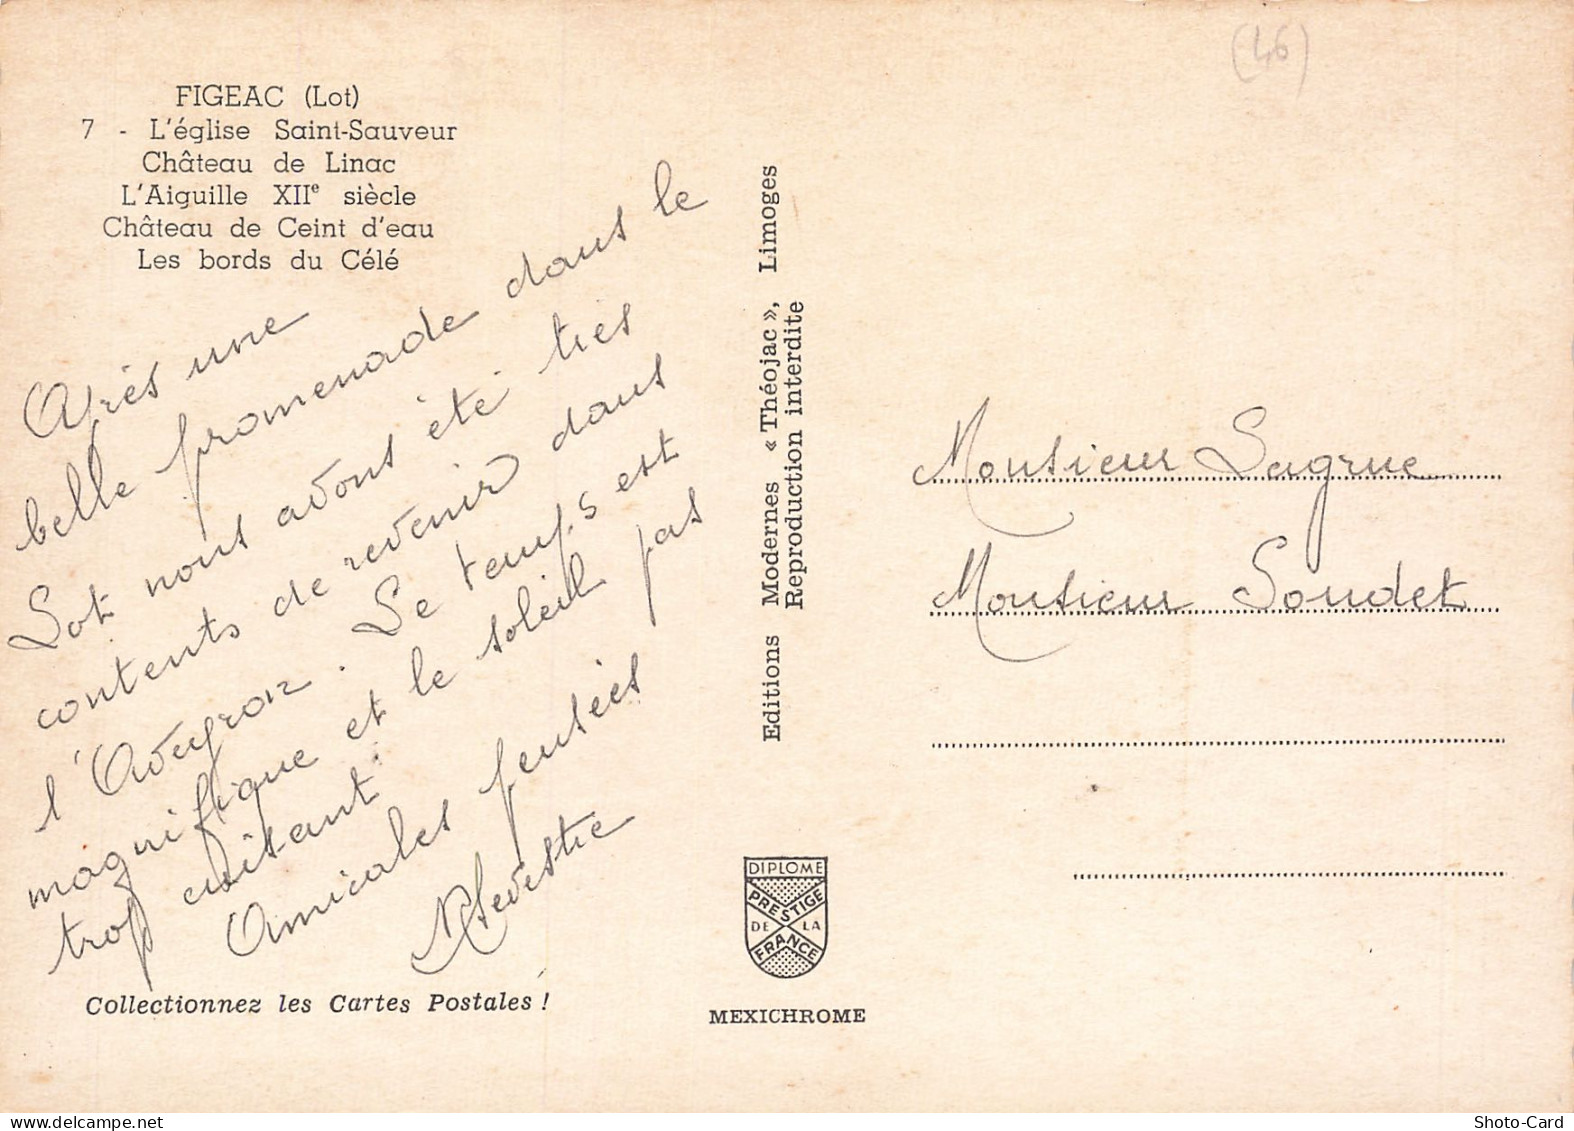 (46)
FIGEAC (Lot)
7 - L'église Saint-Sauveur
Château de Linac
L'Aiguille XIIe siècle
Château de Ceint d'eau
Les bords du Célé
Après une
belle promenade dans le
Lot nous avons été très
contents de revenir dans
l'Aveyron. Le temps est
magnifique et le soleil pas
trop cuisant.
Amicales pensées
Collectionnez les Cartes Postales !
Editions Modernes « Théojac », Limoges
Reproduction interdite
DIPLOME
PRESTIGE
DE LA
FRANCE
MEXICHROME
Monsieur Lagrue
Monsieur Soudet
Shoto-Card